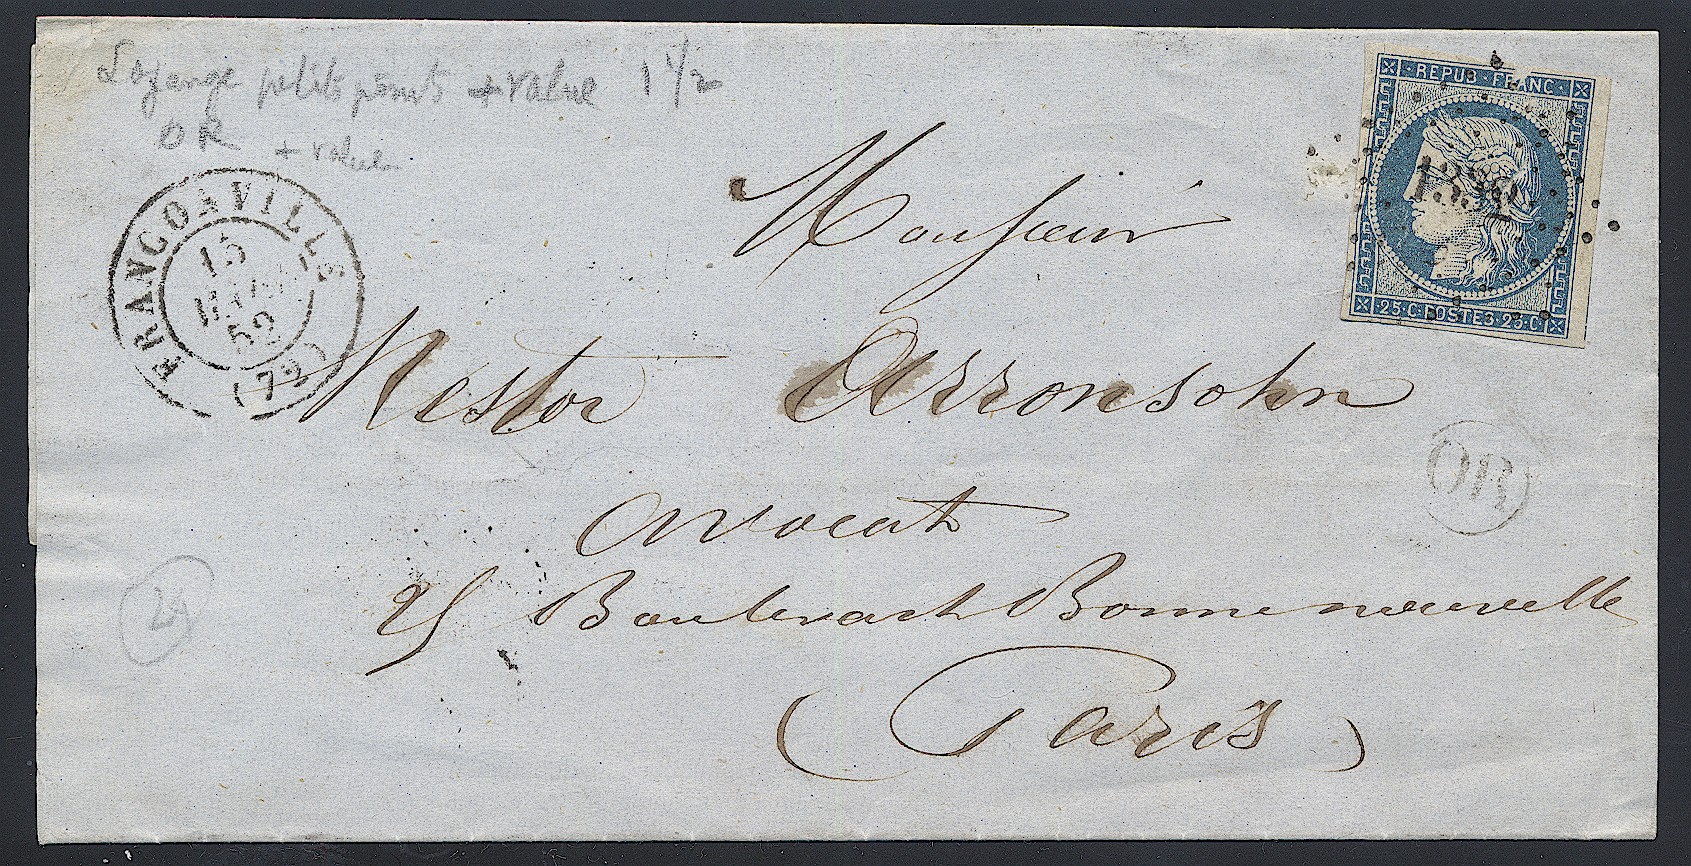 Lozange petits points + value 1 1/2
OR + value
FRANCONVILLE
15
MARS
52
(72)
REPUB·FRANC·
1332
25·C·POSTES·25·C
Monsieur
Nestor Arronsohn
OR
avocat
24
25 Boulevart Bonne nouvelle
Paris